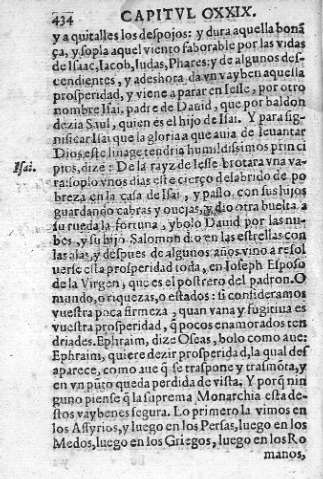 434 CAPITVL OXXIX.
y a quitalles los despojos: y dura aquella bonã
ça, y sopla aquel viento faborable por las vidas
de Isaac, Iacob, Iudas, Phares: y de algunos des-
cendientes, y adeshora da vn vayben aquella
prosperidad, y viene a parar en Iesse, por otro
nombre Isai, padre de Dauid, que por baldon
dezia Saul, quien es el hijo de Isai. Y para sig-
nificar Isai que la gloria a que auia de leuantar
Dios este linage tendria humildissimos princi
Isai.
pios, dize: De la rayz de Iesse brotara vna va-
ra: soplo vnos dias este cierço delabrido de po
breza en la casa de Isai, y passo con sus hijos
guardando cabras y ouejas, y dio otra buelta a
su rueda la fortuna, y bolo Dauid por las nu-
bes, y su hijo Salomon dio en las estrellas con
las alas, y despues de algunos años vino a resol
uerse esta prosperidad toda, en Ioseph Esposo
de la Virgen, que es el postrero del padron. O
mundo, o riquezas, o estados: si consideramos
vuestra poca firmeza, quan vana y fugitiua es
vuestra prosperidad, q̃ pocos enamorados ten
driades. Ephraim, dize Oseas, bolo como aue:
Ephraim, quiere dezir prosperidad, la qual des
aparece, como aue q̃ se traspone y trasmõta, y
en vn pũto queda perdida de vista. Y porq̃ nin
guno piense q̃ la suprema Monarchia esta de-
stos vaybenes segura. Lo primero la vimos en
los Assyrios, y luego en los Persas, luego en los
Medos, luego en los Griegos, luego en los Ro
manos,